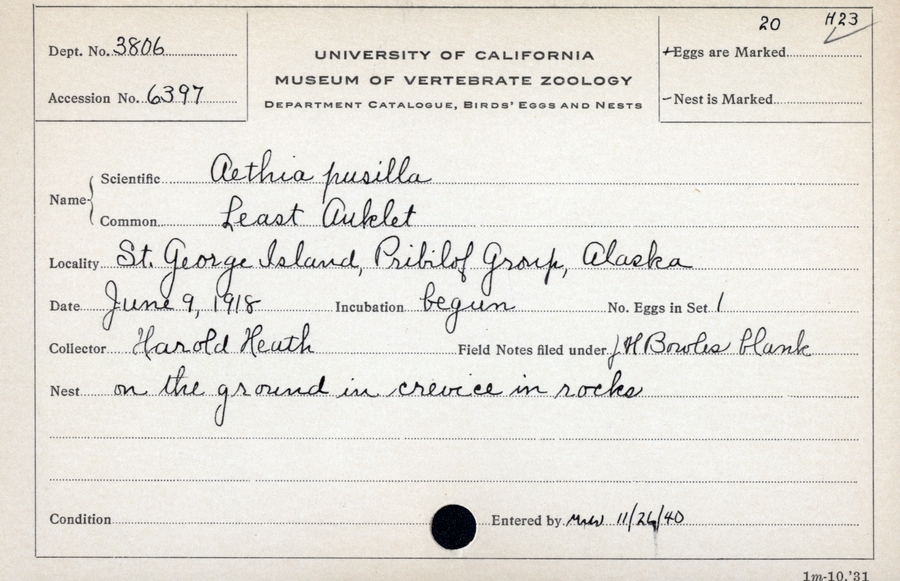 20 H23
Dept. No. 3806
UNIVERSITY OF CALIFORNIA
MUSEUM OF VERTEBRATE ZOOLOGY
DEPARTMENT CATALOGUE, BIRDS' EGGS AND NESTS
+Eggs are Marked
Accession No. 6397
-Nest is Marked
Name
Scientific Aethia pusilla
Common Least Auklet
Locality St. George Island, Pribilof Group, Alaska
Date June 9, 1918 Incubation begun No. Eggs in Set 1
Collector Harold Heath Field Notes filed under J H Bowles blank
Nest on the ground in crevice in rocks
Condition Entered by 11/26/40
1m-10,'31